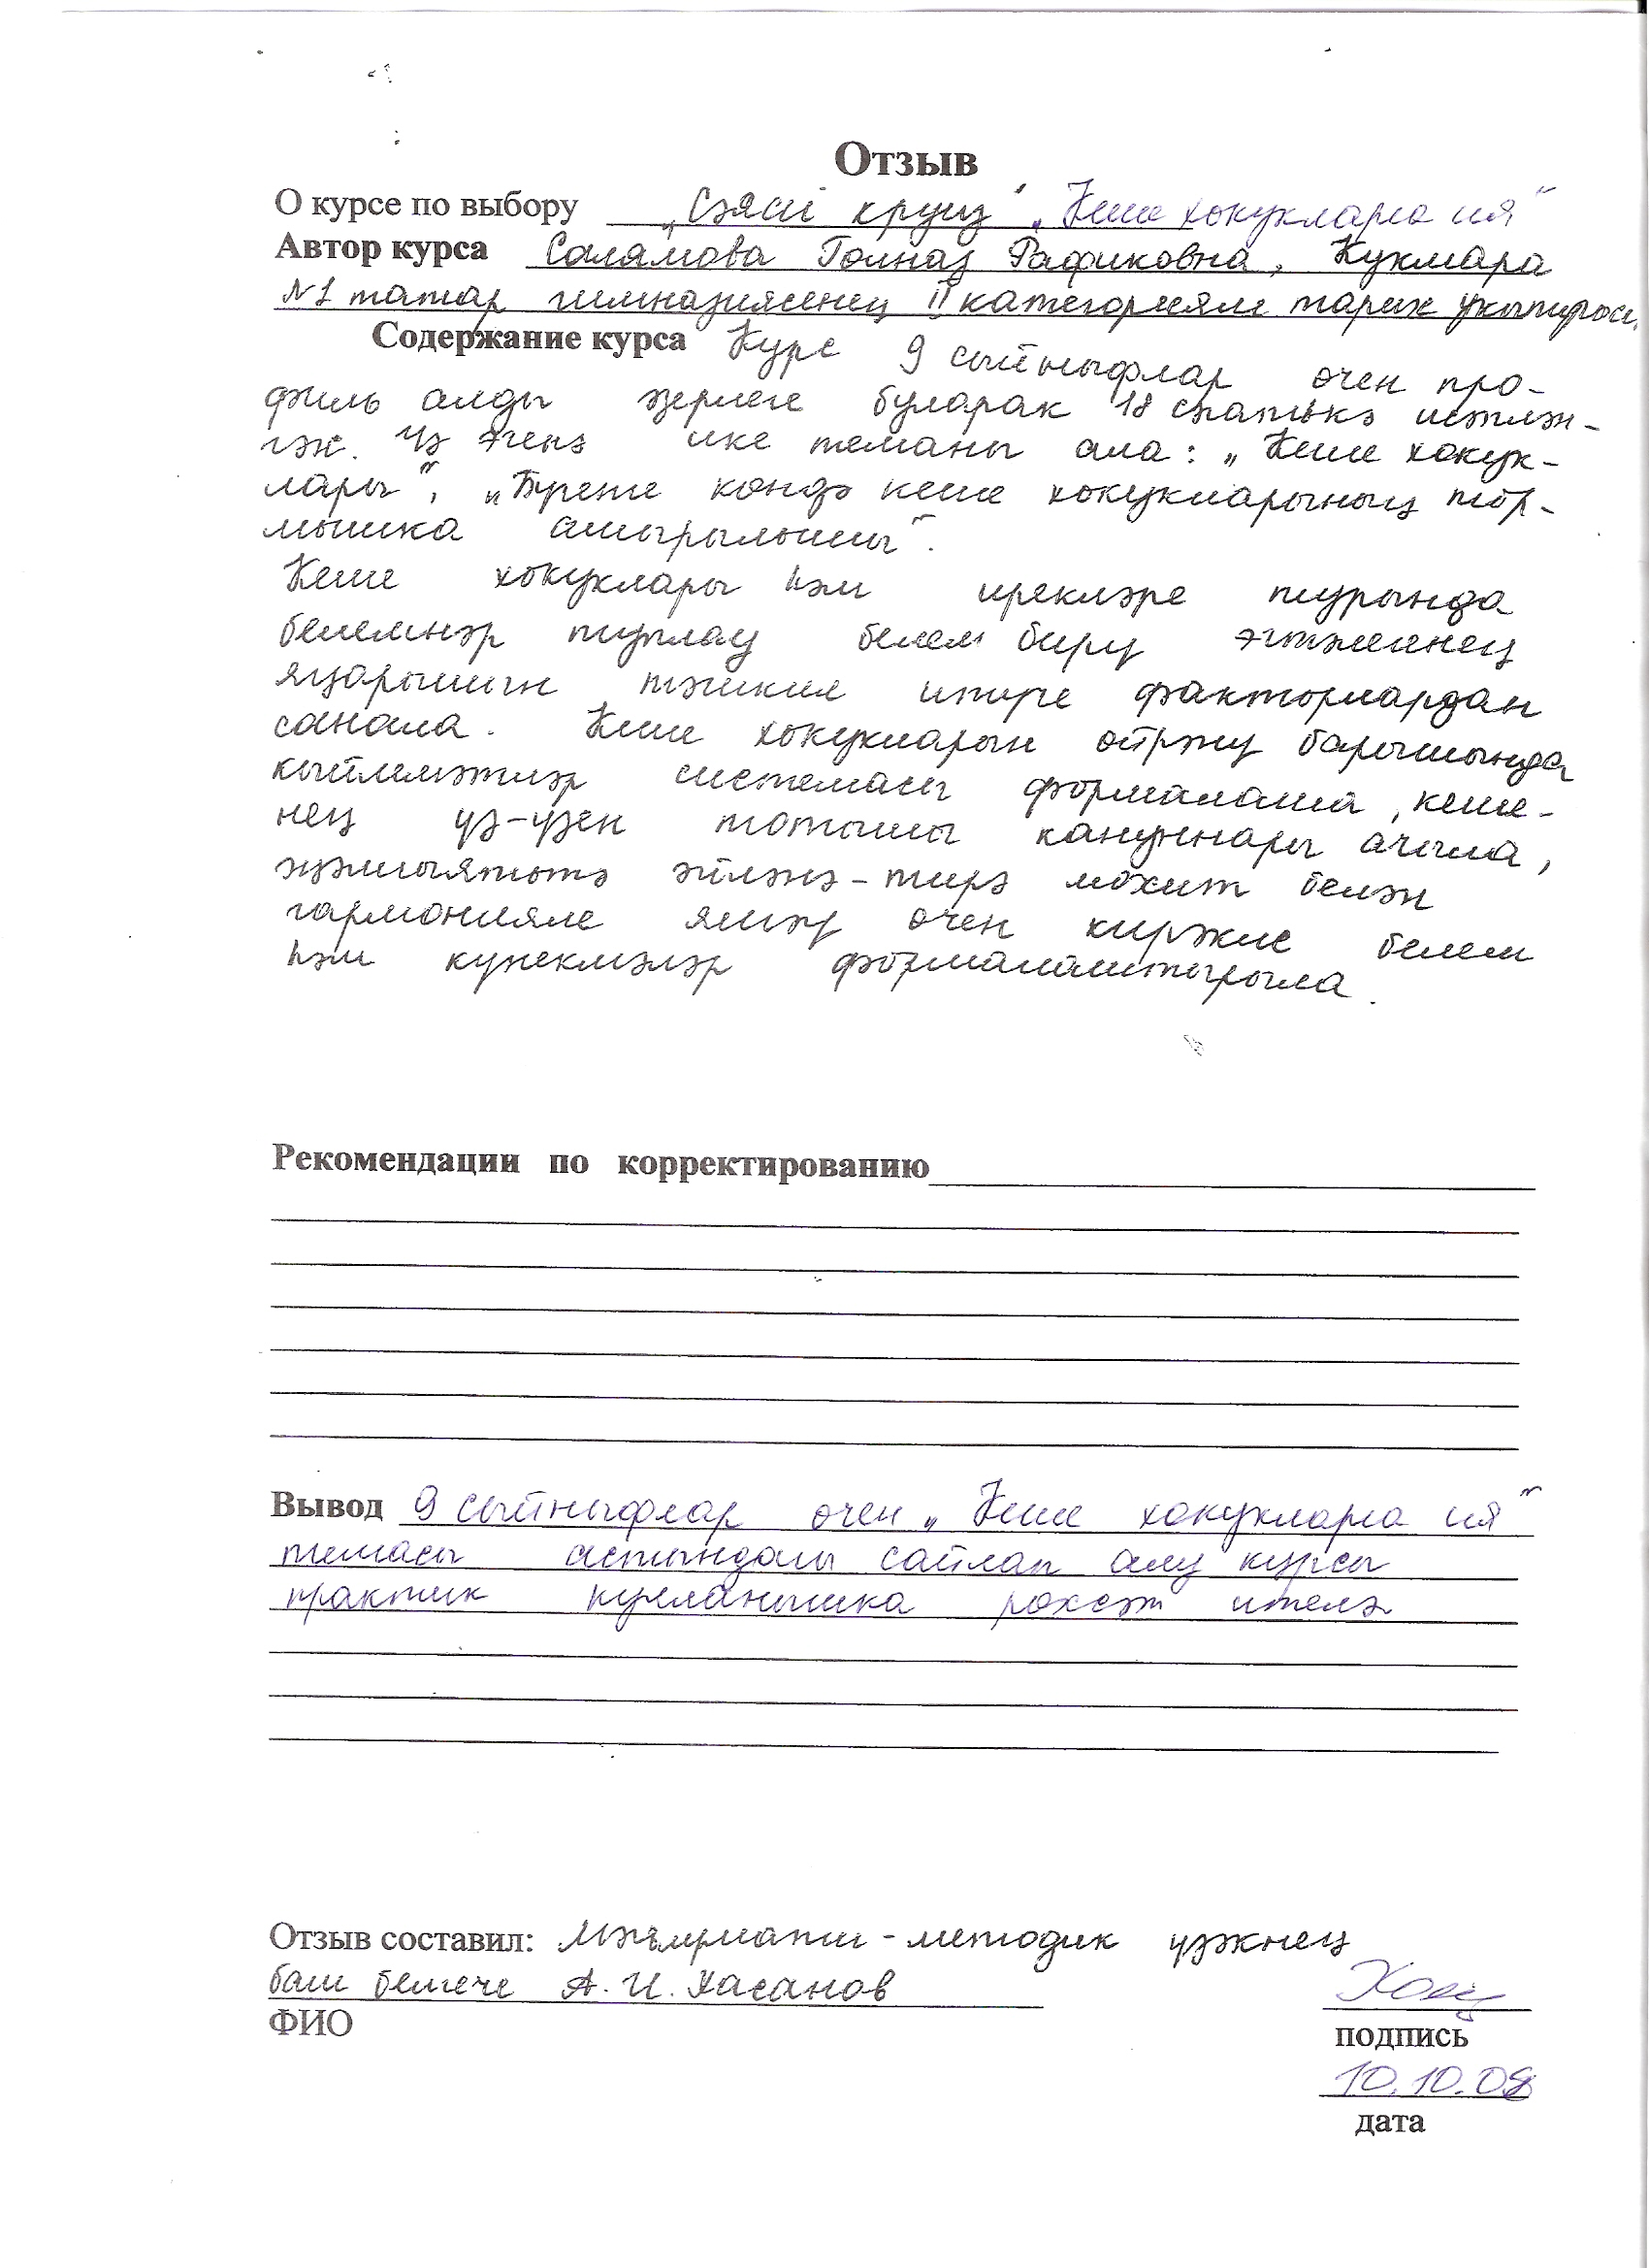 Отзыв
О курсе по выбору „Сәяси круиз" „Кеше хокукларга ия"
Автор курса Салямова Гөлназ Рафиковна, Кукмара
№1 татар гимназиясенең II категорияле тарих укытучысы.
Содержание курса Курс 9 сыйныфлар өчен про-
филь алды әзерлеге буларак 18 сәгатькә исәплән-
гән. Үз эченә ике теманы ала: „Кеше хокук-
лары", „Бүгенге көндә кеше хокукларының тор-
мышка ашырылышы".
Кеше хокуклары һәм ирекләре турында
белемнәр туплау белем бирү эчтәлегенең
яңарышын тәшкил итүче факторлардан
санала. Кеше хокукларын өйрәнү барышында
кыйммәтләр системасы формалаша, кеше-
нең үз-үзен тотышы кануннары ачыла,
җәмгыятьтә әйләнә-тирә мохит белән
гармонияле яшәү өчен кирәкле белем
һәм күнекмәләр формалаштырыла.
Рекомендации по корректированию
Вывод 9 сыйныфлар өчен „Кеше хокукларга ия"
темасы астындагы сайлап алу курсы
практик кулланышка рөхсәт ителә
Отзыв составил: Мәгълүмати-методик үзәкнең
баш белгече А.И. Хасанов
ФИО
подпись
10.10.08
дата